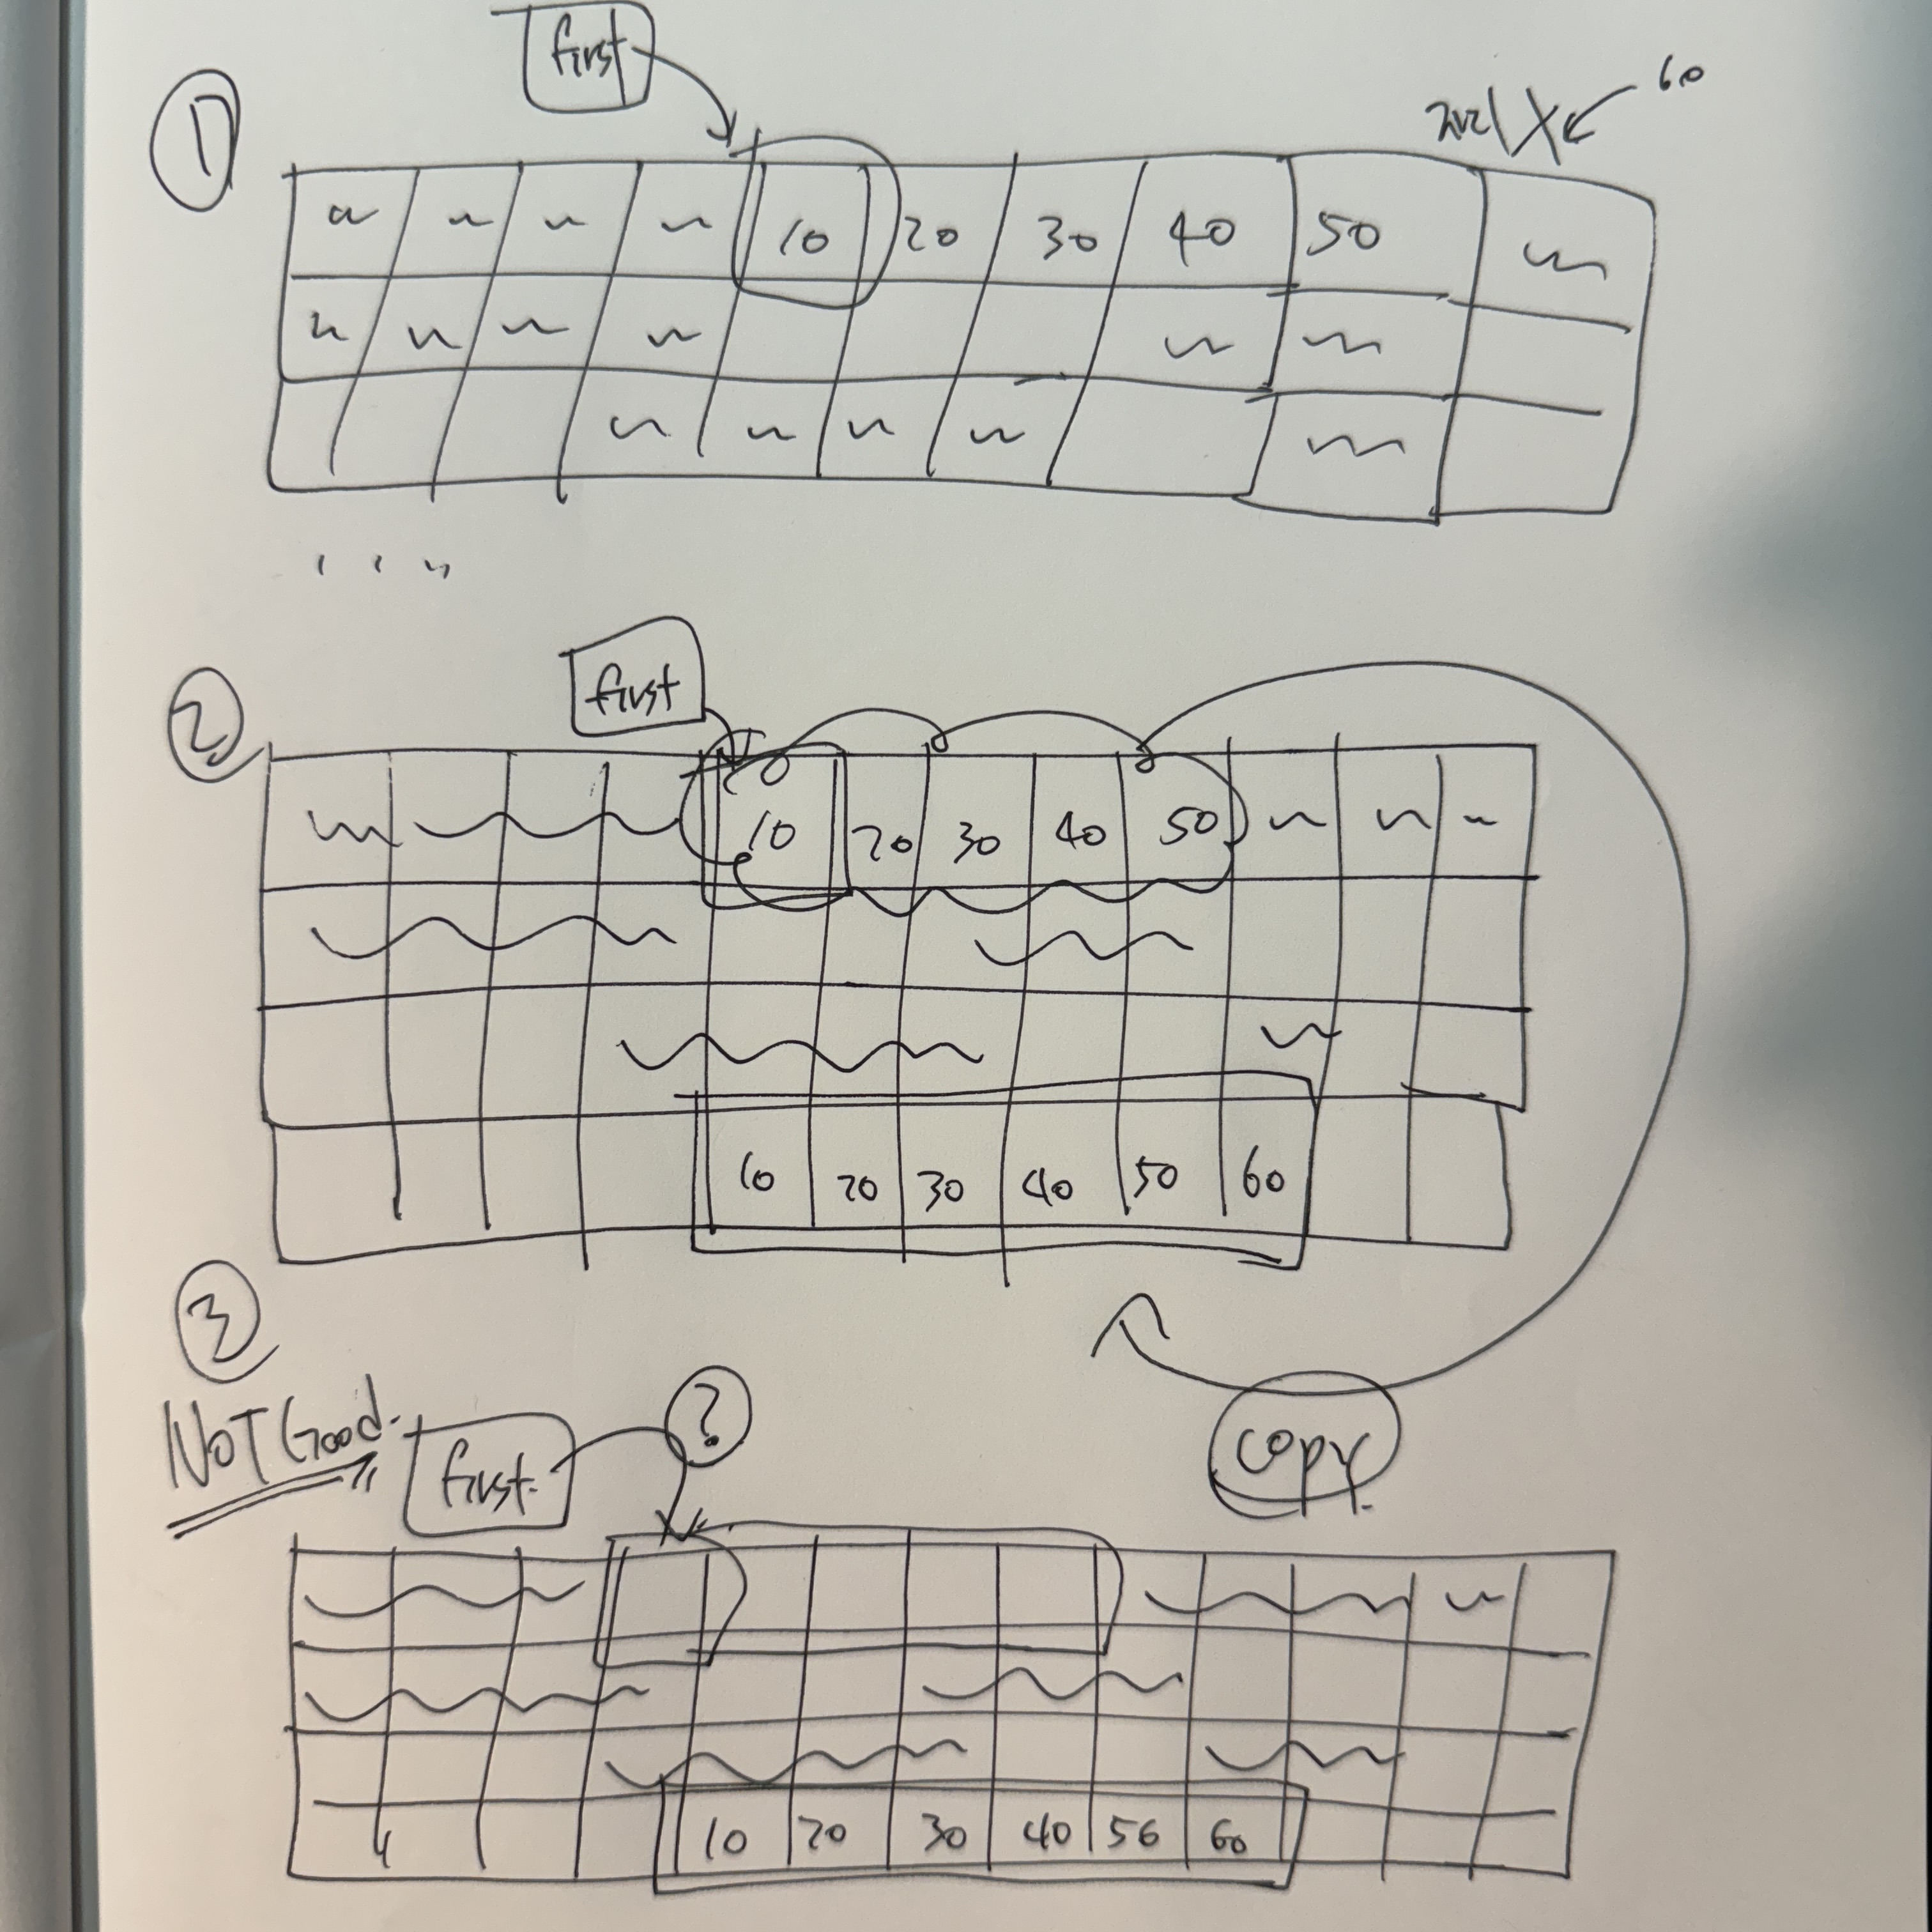 ①
first
60
10 20 30 40 50
②
first
10 20 30 40 50
10 20 30 40 50 60
③
NOT Good.
first.
?
copy.
10 20 30 40 50 60